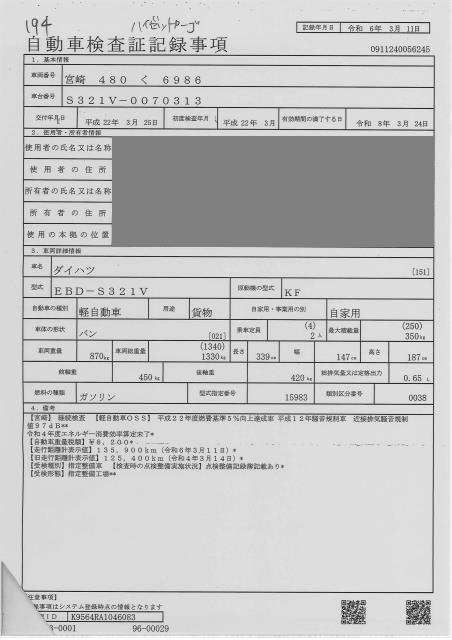 194 ハイゼットカーゴ
記録年月日 令和 6年 3月 11日
自動車検査証記録事項
0911240056245
1．基本情報
車両番号 宮崎 480 く 6986
車台番号 S321V-0070313
交付年月日 平成 22年 3月 25日 初度検査年月 平成 22年 3月 有効期間の満了する日 令和 8年 3月 24日
2．使用者・所有者情報
使用者の氏名又は名称
使用者の住所
所有者の氏名又は名称
所有者の住所
使用の本拠の位置
3．車両詳細情報
車名 ダイハツ [151]
型式 EBD-S321V 原動機の型式 KF
自動車の種別 軽自動車 用途 貨物 自家用・事業用の別 自家用
車体の形状 バン [021] 乗車定員 (4) 2人 最大積載量 (250) 350kg
車両重量 870kg 車両総重量 (1340) 1330kg 長さ 339cm 幅 147cm 高さ 187cm
前軸重 450kg 後軸重 420kg 総排気量又は定格出力 0.65 L
燃料の種類 ガソリン 型式指定番号 15983 類別区分番号 0038
4．備考
【宮崎】 継続検査 【軽自動車OSS】 平成22年度燃費基準5％向上達成車 平成12年騒音規制車 近接排気騒音規制
値97dB**
令和4年度エネルギー消費効率算定未了*
【自動車重量税額】￥8，200*
【走行距離計表示値】135，900km（令和6年3月11日）*
【旧走行距離計表示値】125，400km（令和4年3月14日）*
【受検種別】指定整備車 【検査時の点検整備実施状況】点検整備記録簿記載あり*
【受検形態】指定整備工場**
注意事項】
事項はシステム登録時点の情報となります
ID K9564RA1046083
3-0001 96-00029